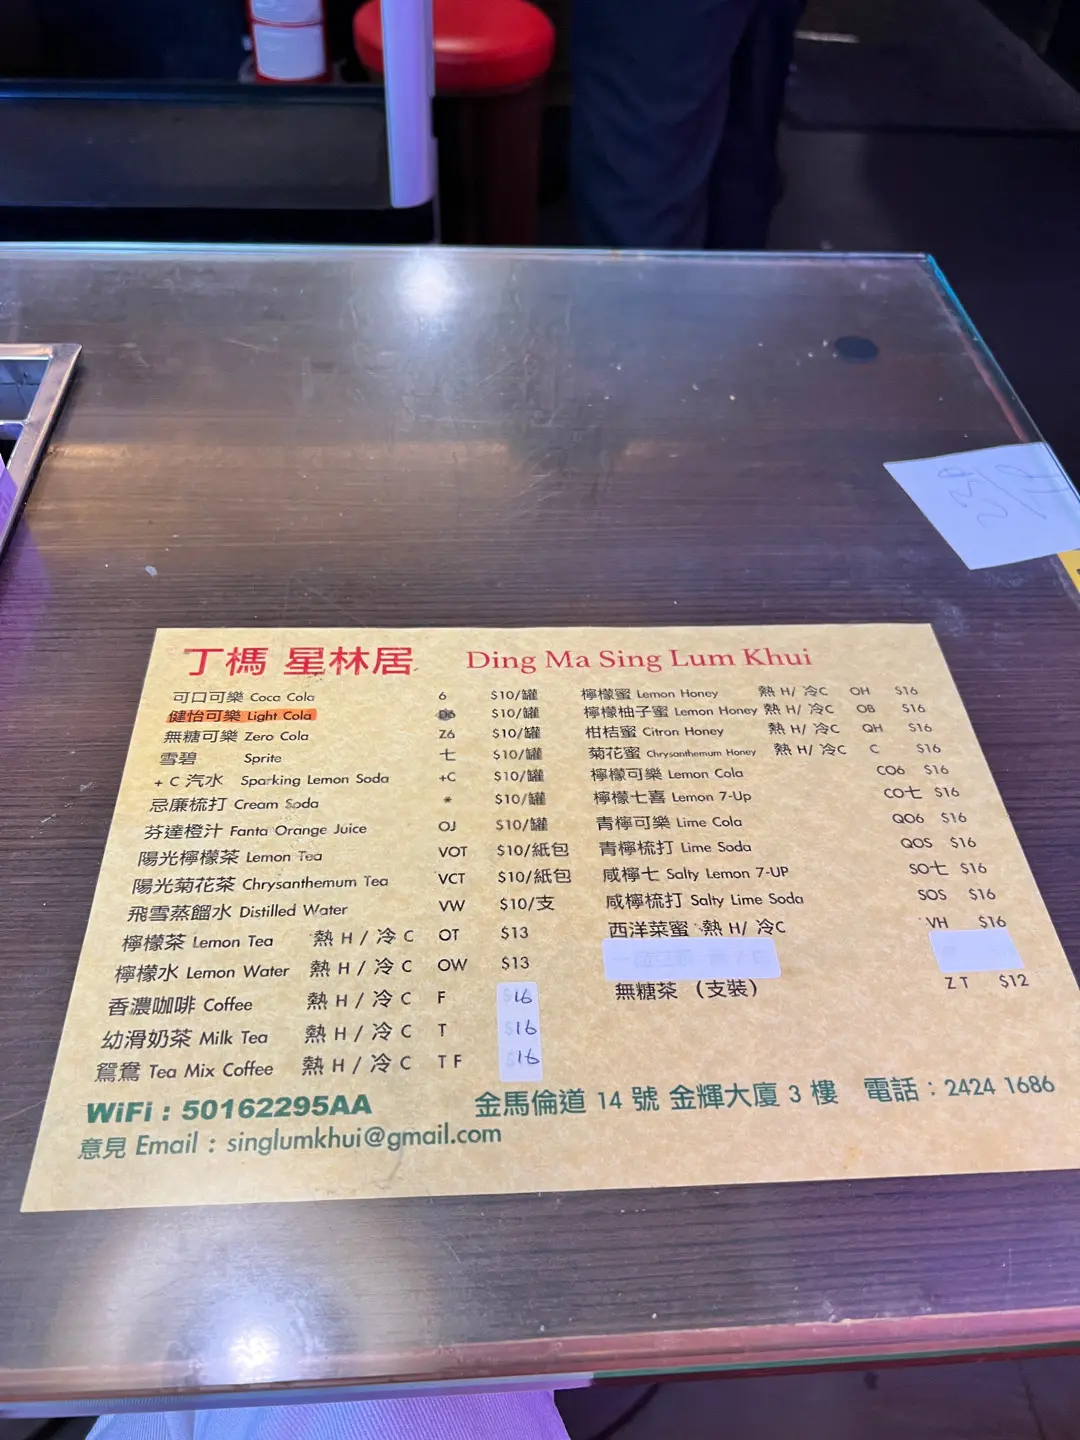 丁榪 星林居 Ding Ma Sing Lum Khui
可口可樂 Coca Cola 6 $10/罐
健怡可樂 Light Cola $10/罐
無糖可樂 Zero Cola Z6 $10/罐
雪碧 Sprite 七 $10/罐
+ C 汽水 Sparking Lemon Soda +C $10/罐
忌廉梳打 Cream Soda * $10/罐
芬達橙汁 Fanta Orange Juice OJ $10/罐
陽光檸檬茶 Lemon Tea VOT $10/紙包
陽光菊花茶 Chrysanthemum Tea VCT $10/紙包
飛雪蒸餾水 Distilled Water VW $10/支
檸檬茶 Lemon Tea 熱 H / 冷 C OT $13
檸檬水 Lemon Water 熱 H / 冷 C OW $13
香濃咖啡 Coffee 熱 H / 冷 C F $16
幼滑奶茶 Milk Tea 熱 H / 冷 C T $16
鴛鴦 Tea Mix Coffee 熱 H / 冷 C T F $16
檸檬蜜 Lemon Honey 熱 H/ 冷C OH $16
檸檬柚子蜜 Lemon Honey 熱 H/ 冷C OB $16
柑桔蜜 Citron Honey 熱 H/ 冷C QH $16
菊花蜜 Chrysanthemum Honey 熱 H/ 冷C C $16
檸檬可樂 Lemon Cola CO6 $16
檸檬七喜 Lemon 7-Up CO七 $16
青檸可樂 Lime Cola QO6 $16
青檸梳打 Lime Soda QOS $16
咸檸七 Salty Lemon 7-UP SO七 $16
咸檸梳打 Salty Lime Soda SOS $16
西洋菜蜜 熱 H/ 冷C VH $16
無糖茶 （支裝） Z T $12
WiFi : 50162295AA
金馬倫道 14 號 金輝大廈 3 樓 電話 : 2424 1686
意見 Email : singlumkhui@gmail.com